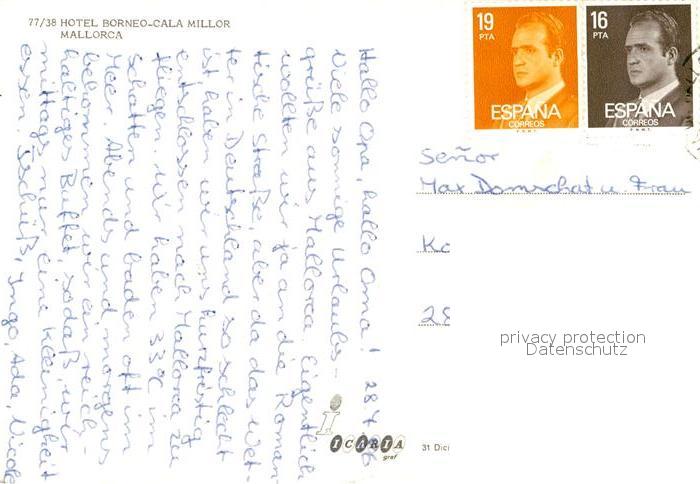 77/38 HOTEL BORNEO-CALA MILLOR
MALLORCA
19
PTA
ESPAÑA
CORREOS
F.N.M.T.
16
PTA
ESPAÑA
CORREOS
F.N.M.T.
Señor
Max Domschat u. Frau
Ko
28
privacy protection
Datenschutz
ICARIA
graf
31 Dici
28.7.86
Hallo Opa, hallo Oma!
Viele sonnige Urlaubs-
grüße aus Mallorca. Eigentlich
wollten wir ja an die Roman-
tische Straße, aber da das Wet-
ter in Deutschland so schlecht
ist haben wir uns kurzfristig
entschlossen nach Mallorca zu
fliegen. Wir haben 33°C im
Schatten und baden oft im
Meer. Abends und morgens
bekommen wir ein reich-
haltiges Buffet, sodaß wir
mittags nur eine Kleinigkeit
essen. Tschüß, Ingo, Ada, Nicole